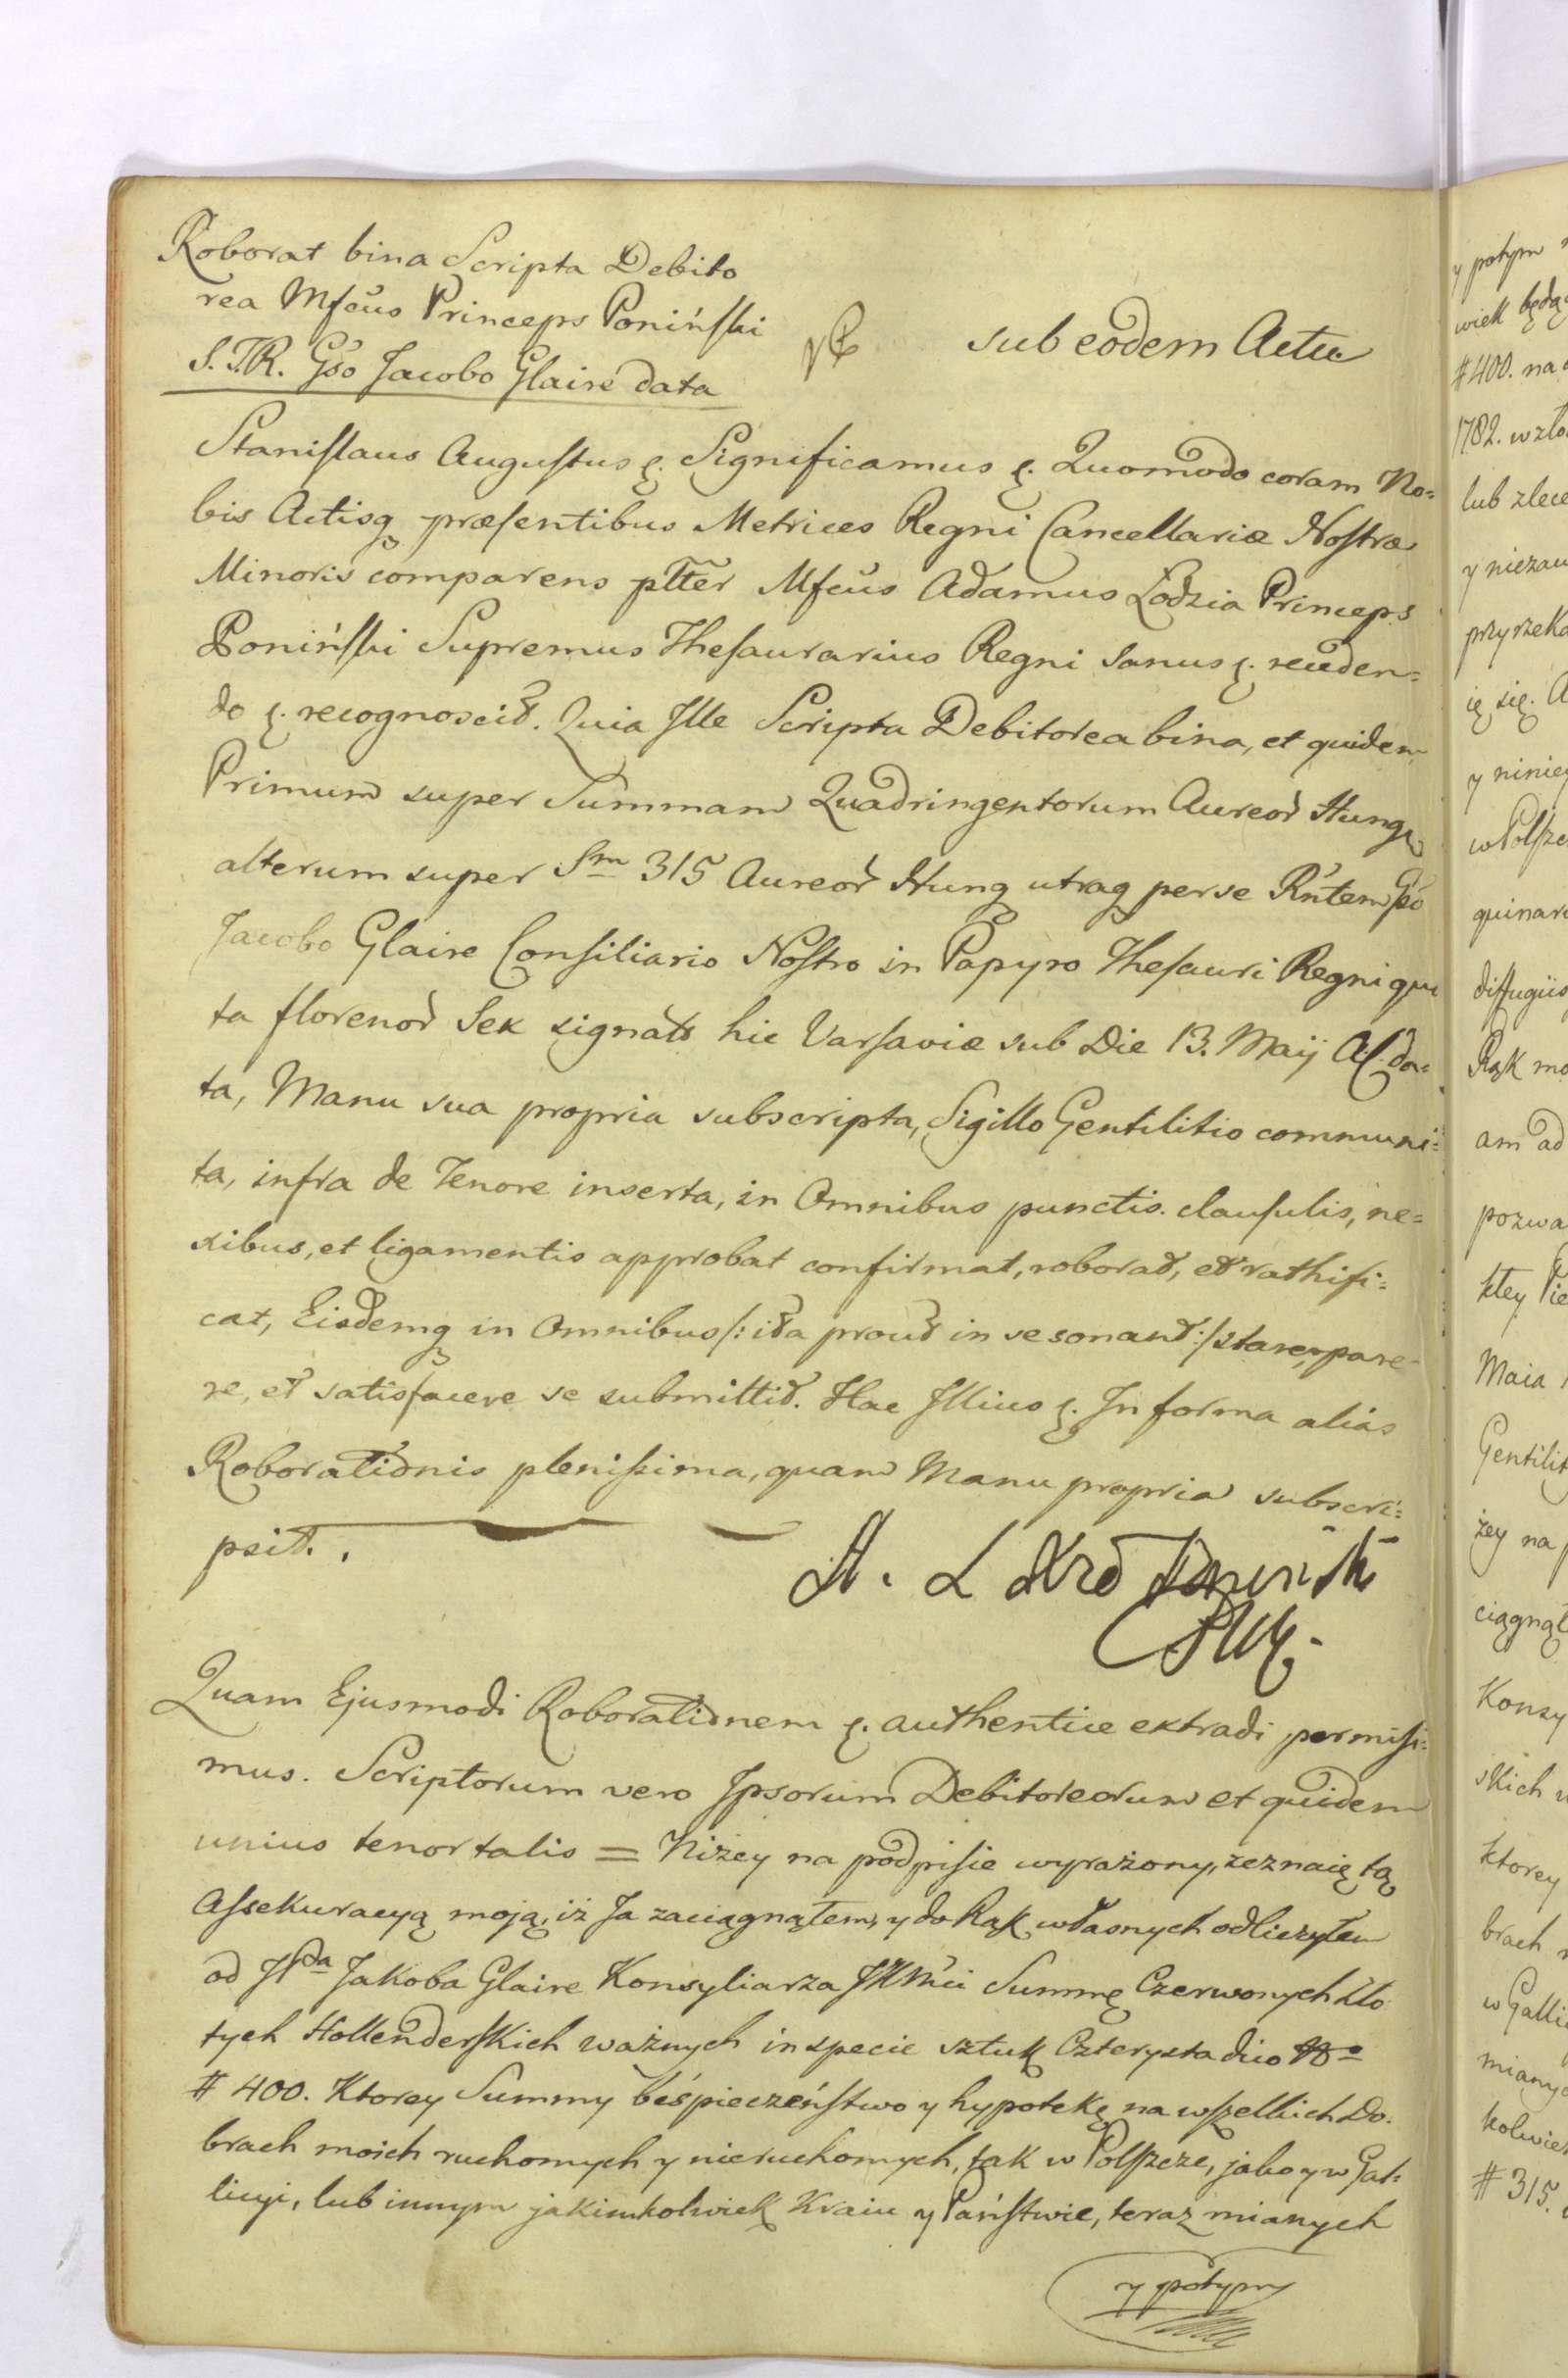 Roborat bina Scripta Debito
rea Mfcus Princeps Poniński
S.T.R. Gso Jacobo Glaire data
sub eodem Actu
Stanislaus Augustus ę. Significamus ę. Quomodo coram No=
bis Actisq præsentibus Metrices Regni Cancellariæ Nostræ
Minoris comparens plter Mfcus Adamus Łodzia Princeps
Poniński Supremus Thesaurarius Regni Sanus ę. receden=
do ę. recognoscit. Quia Ille Scripta Debitorea bina, et quidem
Primum super Summam Quadringentorum Aureor Hung
alterum super Sm 315 Aureor Hung utraq per se Rntem Gso
Jacobo Glaire Consiliario Nostro in Papyro Thesauri Regni
ta florenor Sex signato hic Varsaviæ sub Die 13. Maij A.C. da=
ta, Manu sua propria subscripta, Sigillo Gentilitio communi=
ta, infra de Tenore inserta, in Omnibus punctis. clausulis, ne=
xibus, et ligamentis approbat confirmat, roborat, et rathifi=
cat, Eisdemq in Omnibus /: ita prout in se sonant :/ stare, pare=
re, et satisfacere se submittit. Hac Illius ę. In forma alias
Roborationis plenissima, quam Manu propria subscri=
psit.
A. L Xże Poniński
Quam Ejusmodi Roborationem ę. authentice extradi permisi=
mus. Scriptorum vero Ipsorum Debitoreorum et quidem
unius tenor talis = Niżey na podpisie wyrażony, zeznaię tą
Assekuracyą moją, iż Ja zaciągnąłem, y do Rąk własnych odliczyłem
od JPa Jakoba Glaire Konsyliarza JKMci Summę Czerwonych Zło
tych Hollenderskich ważnych in specie sztuk Czterysta dico No
# 400. Ktorey Summy beśpieczeństwo y hypotekę na wszelkich Do.
brach moich ruchomych y nieruchomych, tak w Polszcze, jako y w Gal=
licyi, lub innym jakimkolwiek Kraiu y Państwie, teraz mianych
y potym
y potym
wiek będą
# 400. na
1782. w zło
lub zlece
y niezaw
przyrzeka
ię się. A
y niniey
w Polszc
quinar
diffugiis
Rąk mo
am ad
pozwa
ktey
Maia
Gentilit
żey na
ciągnął
Konsy
skich
ktorey
brach
w Galli
miany
kolwie
# 315.